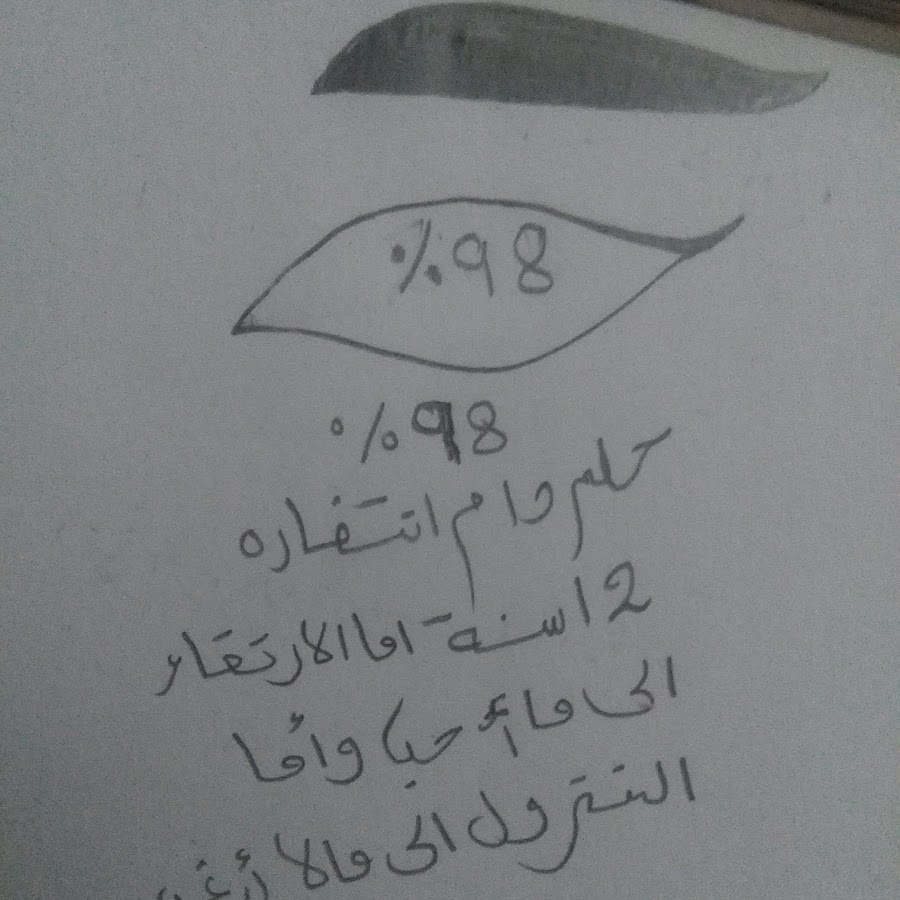 %98
%98
حلم دام انتضاره
12 سنة اما الارتقاء
الى ما أحبا وأما
التترول الى مالا أرغب